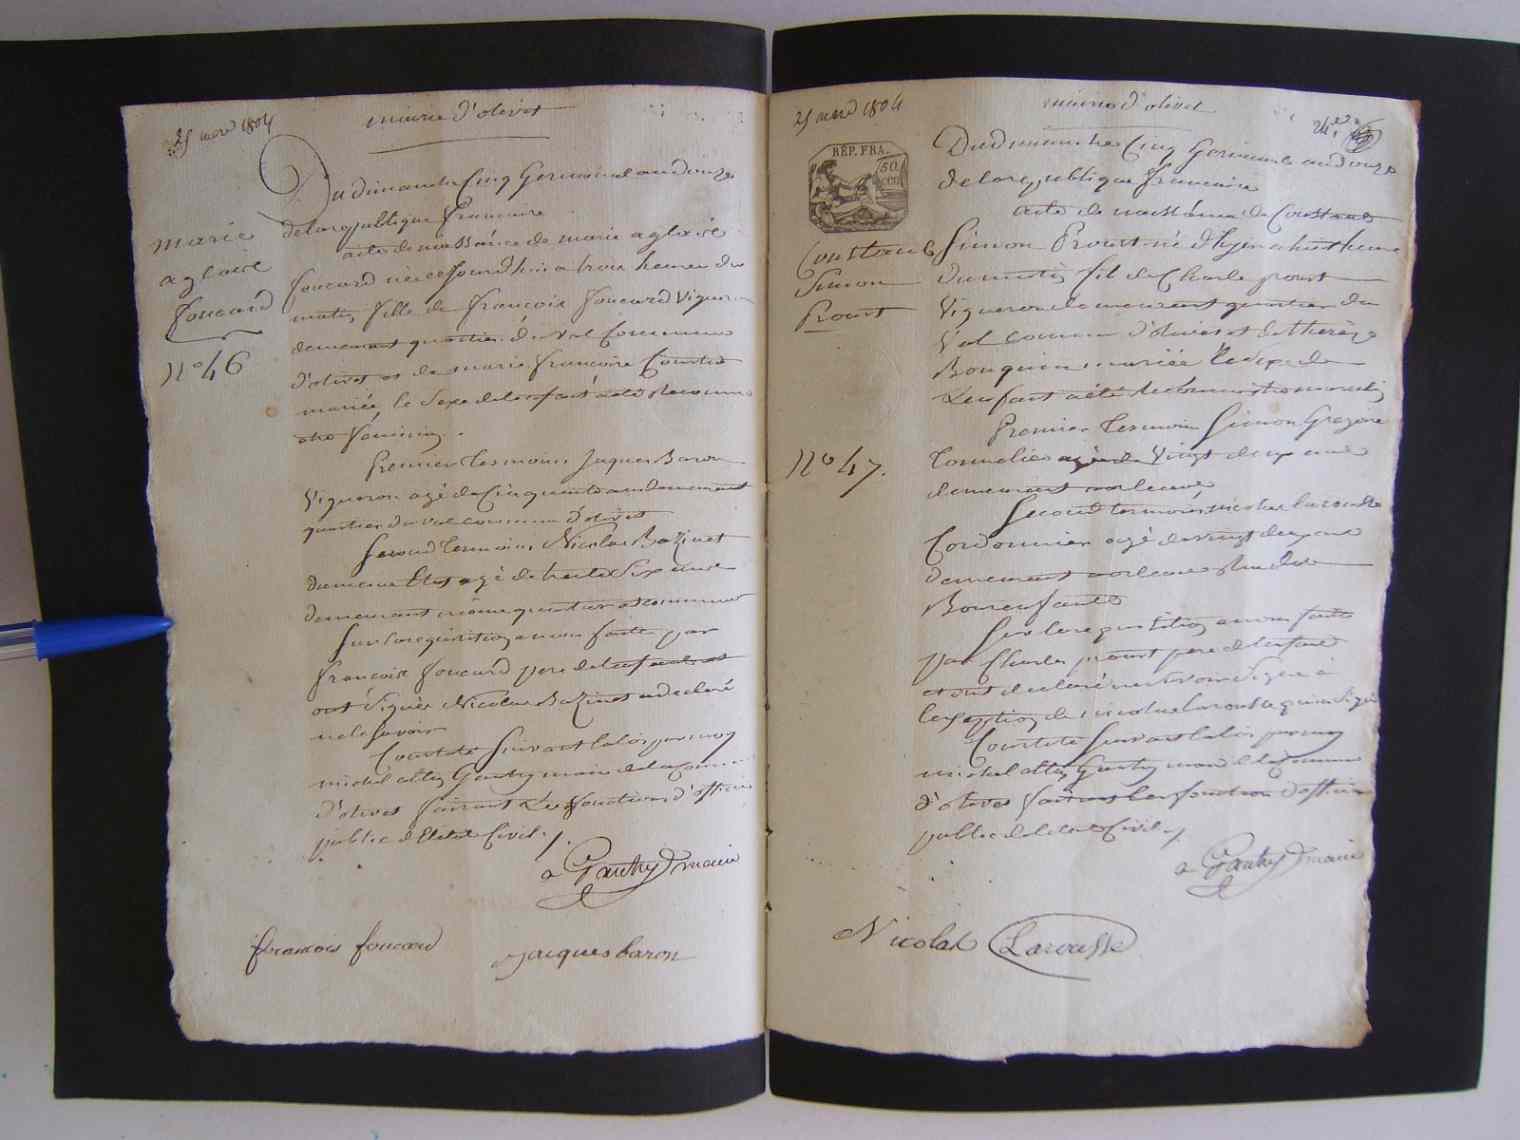 25 mars 1804
mairie d'olivet
Du dimanche Cinq Germinal an douze
de la republique francaise
acte de naissance de marie aglaïe
foucard née cejourd'huy a trois heures du
matin fille de françois foucard Vigneron
demeurant quartier du Val Commune
d'olivet et de marie francoise
mariée, le Sexe de lenfant a été Reconnu
etre feminin.
Premier temoin Jacques Baron
Vigneron agé de Cinquante ans demeurant
quartier du val commune d'olivet
Second temoin Nicolas Bazinet
agé de trente Six ans
demeurant même quartier et commune
Sur la requisition a nous faite par
françois foucard pere de lenfant et
ont Signés Nicolas Bazinet a declaré
ne le Savoir
Constaté Suivant la loi par moy
michel Gautry maire de la Commune
d'olivet faisant Les fonctions d'officier
public de l'Etat Civil.
a Gautry maire
françois foucard
Jacques baron
marie
aglaïe
foucard
N° 46
25 mars 1804
mairie d'olivet
24
RÉP. FRA.
50
CEN.
Du dimanche Cinq Germinal an douze
de la republique francaise
acte de naissance de Constant
Simon Proust né d'hyer a huit heures
du matin fils de Charle proust
Vigneron demeurant quartier du
Val commune d'olivet et de therèze
Bouquin mariée le Sexe de
Lenfant a été Reconnu etre masculin
Premier temoin Simon Gregoire
Tonnelier agé de Vingt deux ans
demeurant a orleans
Second temoin nicolas larousse
Cordonnier agé de vingt deux ans
demeurant a orleans rue des
Bons enfants
Sur la requisition a nous faite
par Charles proust pere de lenfant
et ont declaré ne savoir Signer à
lexception de nicolas larousse qui a Signé
Constaté Suivant la loi par moy
michel Gautry maire de la Commune
d'olivet faisant les fonctions d'officier
public de l'état Civil.
a Gautry maire
Nicolas Larousse
Constant
Simon
Proust
N° 47.